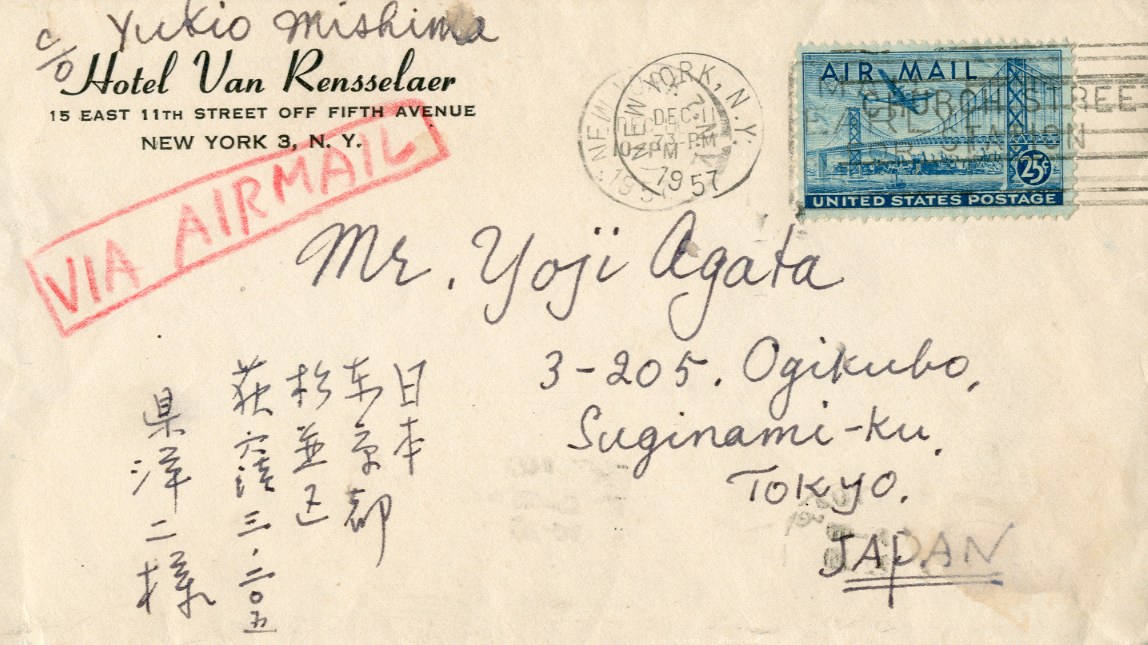 Yukio Mishima
c/o
Hotel Van Rensselaer
15 EAST 11TH STREET OFF FIFTH AVENUE
NEW YORK 3, N. Y.
VIA AIRMAIL
NEW YORK, N.Y.
DEC 11
PM
1957
AIR MAIL
25¢
UNITED STATES POSTAGE
CHURCH STREET
STATION
Mr. Yoji Agata
3-205. Ogikubo,
Suginami-ku,
TOKYO.
JAPAN
日本
东京都
杉並区
荻窪三・二〇五
県洋二様